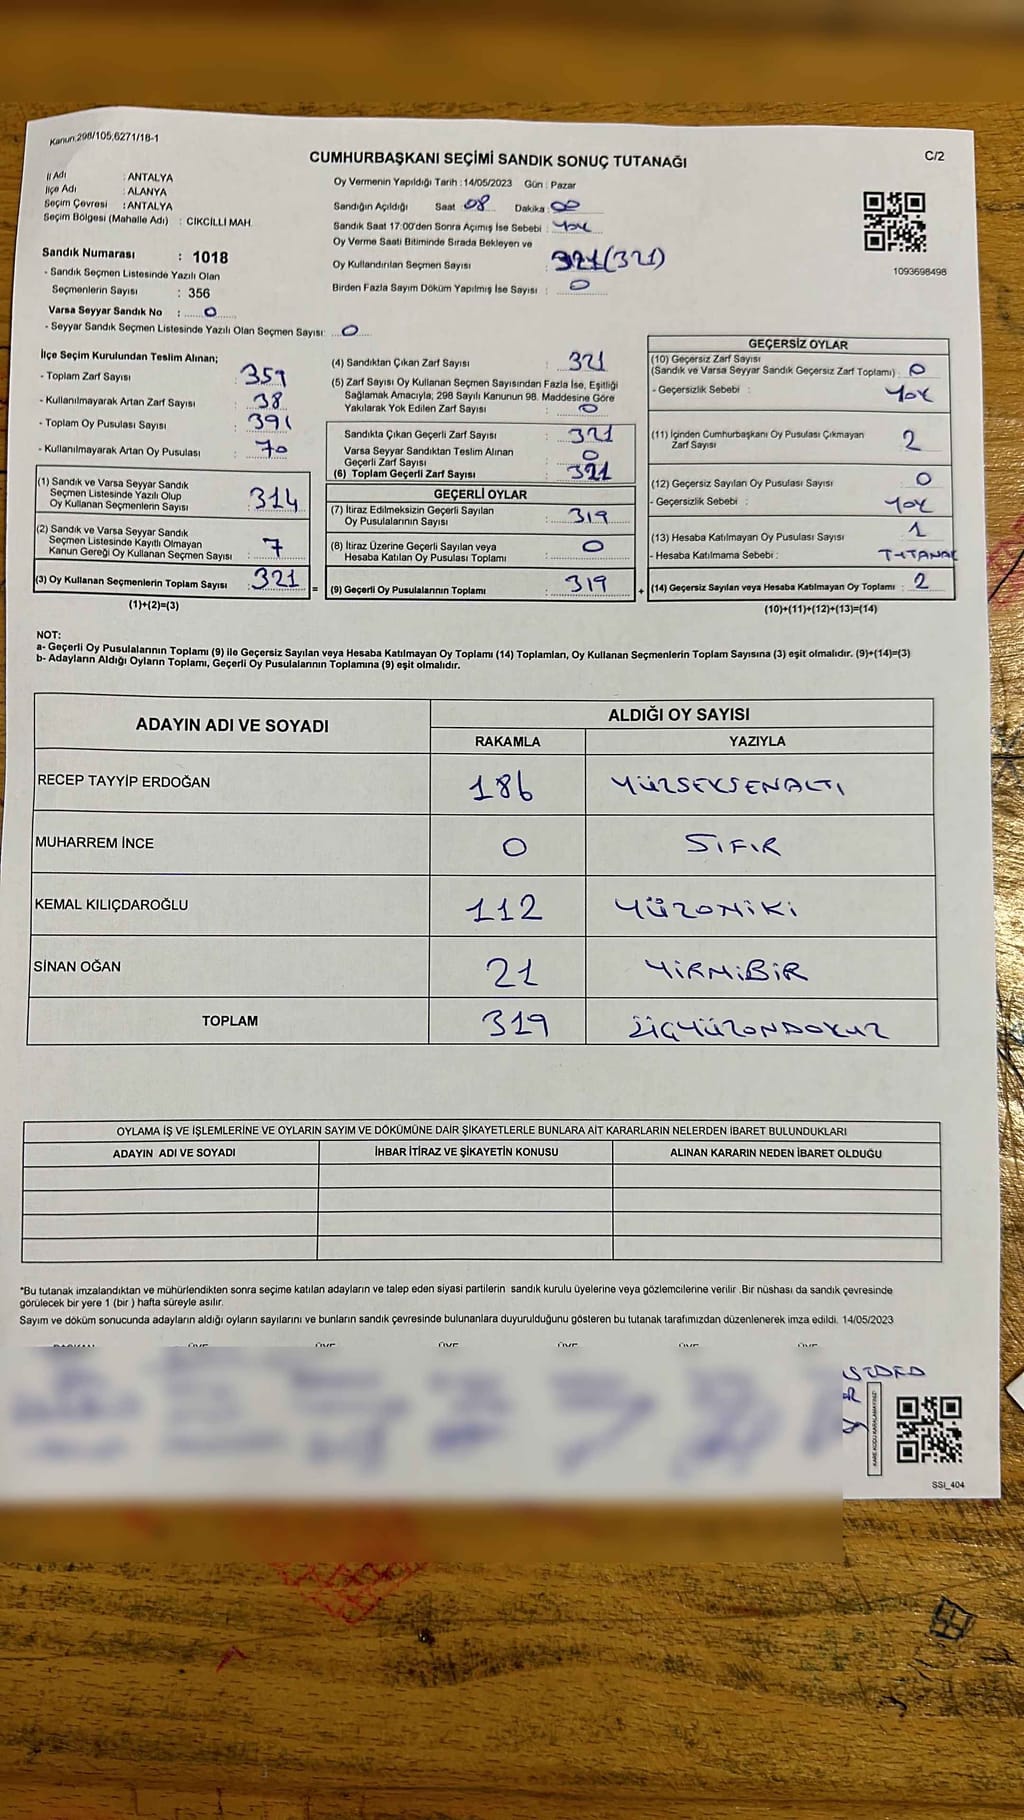 Kanun.298/105,6271/18-1
CUMHURBAŞKANI SEÇİMİ SANDIK SONUÇ TUTANAĞI
C/2
İl Adı : ANTALYA
İlçe Adı : ALANYA
Seçim Çevresi : ANTALYA
Seçim Bölgesi (Mahalle Adı) : CİKCİLLİ MAH.
Sandık Numarası : 1018
- Sandık Seçmen Listesinde Yazılı Olan
Seçmenlerin Sayısı : 356
Varsa Seyyar Sandık No : 0
- Seyyar Sandık Seçmen Listesinde Yazılı Olan Seçmen Sayısı: 0
Oy Vermenin Yapıldığı Tarih : 14/05/2023 Gün : Pazar
Sandığın Açıldığı Saat 08 Dakika : 00
Sandık Saat 17:00'den Sonra Açımış İse Sebebi : YOK
Oy Verme Saati Bitiminde Sırada Bekleyen ve
Oy Kullandırılan Seçmen Sayısı : 321 (321)
Birden Fazla Sayım Döküm Yapılmış İse Sayısı : 0
1093698498
İlçe Seçim Kurulundan Teslim Alınan;
- Toplam Zarf Sayısı : 359
- Kullanılmayarak Artan Zarf Sayısı : 38
- Toplam Oy Pusulası Sayısı : 391
- Kullanılmayarak Artan Oy Pusulası : 70
(1) Sandık ve Varsa Seyyar Sandık
Seçmen Listesinde Yazılı Olup
Oy Kullanan Seçmenlerin Sayısı : 314
(2) Sandık ve Varsa Seyyar Sandık
Seçmen Listesinde Kayıtlı Olmayan
Kanun Gereği Oy Kullanan Seçmen Sayısı : 7
(3) Oy Kullanan Seçmenlerin Toplam Sayısı : 321
(1)+(2)=(3)
=
(4) Sandıktan Çıkan Zarf Sayısı : 321
(5) Zarf Sayısı Oy Kullanan Seçmen Sayısından Fazla İse, Eşitliği
Sağlamak Amacıyla; 298 Sayılı Kanunun 98. Maddesine Göre
Yakılarak Yok Edilen Zarf Sayısı : 0
Sandıkta Çıkan Geçerli Zarf Sayısı : 321
Varsa Seyyar Sandıktan Teslim Alınan
Geçerli Zarf Sayısı : 0
(6) Toplam Geçerli Zarf Sayısı : 321
GEÇERLİ OYLAR
(7) İtiraz Edilmeksizin Geçerli Sayılan
Oy Pusulalarının Sayısı : 319
(8) İtiraz Üzerine Geçerli Sayılan veya
Hesaba Katılan Oy Pusulası Toplamı : 0
(9) Geçerli Oy Pusulalarının Toplamı : 319
+
GEÇERSİZ OYLAR
(10) Geçersiz Zarf Sayısı
(Sandık ve Varsa Seyyar Sandık Geçersiz Zarf Toplamı) : 0
- Geçersizlik Sebebi : YOK
(11) İçinden Cumhurbaşkanı Oy Pusulası Çıkmayan
Zarf Sayısı : 2
(12) Geçersiz Sayılan Oy Pusulası Sayısı : 0
- Geçersizlik Sebebi : YOK
(13) Hesaba Katılmayan Oy Pusulası Sayısı : 1
- Hesaba Katılmama Sebebi : TUTANAK
(14) Geçersiz Sayılan veya Hesaba Katılmayan Oy Toplamı : 2
(10)+(11)+(12)+(13)=(14)
NOT:
a- Geçerli Oy Pusulalarının Toplamı (9) ile Geçersiz Sayılan veya Hesaba Katılmayan Oy Toplamı (14) Toplamları, Oy Kullanan Seçmenlerin Toplam Sayısına (3) eşit olmalıdır. (9)+(14)=(3)
b- Adayların Aldığı Oyların Toplamı, Geçerli Oy Pusulalarının Toplamına (9) eşit olmalıdır.
ADAYIN ADI VE SOYADI ALDIĞI OY SAYISI
RAKAMLA YAZIYLA
RECEP TAYYİP ERDOĞAN 186 YÜZSEKSENALTI
MUHARREM İNCE 0 SIFIR
KEMAL KILIÇDAROĞLU 112 YÜZONİKİ
SİNAN OĞAN 21 YİRMİBİR
TOPLAM 319 ÜÇYÜZONDOKUZ
OYLAMA İŞ VE İŞLEMLERİNE VE OYLARIN SAYIM VE DÖKÜMÜNE DAİR ŞİKAYETLERLE BUNLARA AİT KARARLARIN NELERDEN İBARET BULUNDUKLARI
ADAYIN ADI VE SOYADI İHBAR İTİRAZ VE ŞİKAYETİN KONUSU ALINAN KARARIN NEDEN İBARET OLDUĞU
*Bu tutanak imzalandıktan ve mühürlendikten sonra seçime katılan adayların ve talep eden siyasi partilerin sandık kurulu üyelerine veya gözlemcilerine verilir .Bir nüshası da sandık çevresinde
görülecek bir yere 1 (bir ) hafta süreyle asılır.
Sayım ve döküm sonucunda adayların aldığı oyların sayılarını ve bunların sandık çevresinde bulunanlara duyurulduğunu gösteren bu tutanak tarafımızdan düzenlenerek imza edildi. 14/05/2023
BAŞKAN ÜYE ÜYE ÜYE ÜYE ÜYE ÜYE
SSI_404